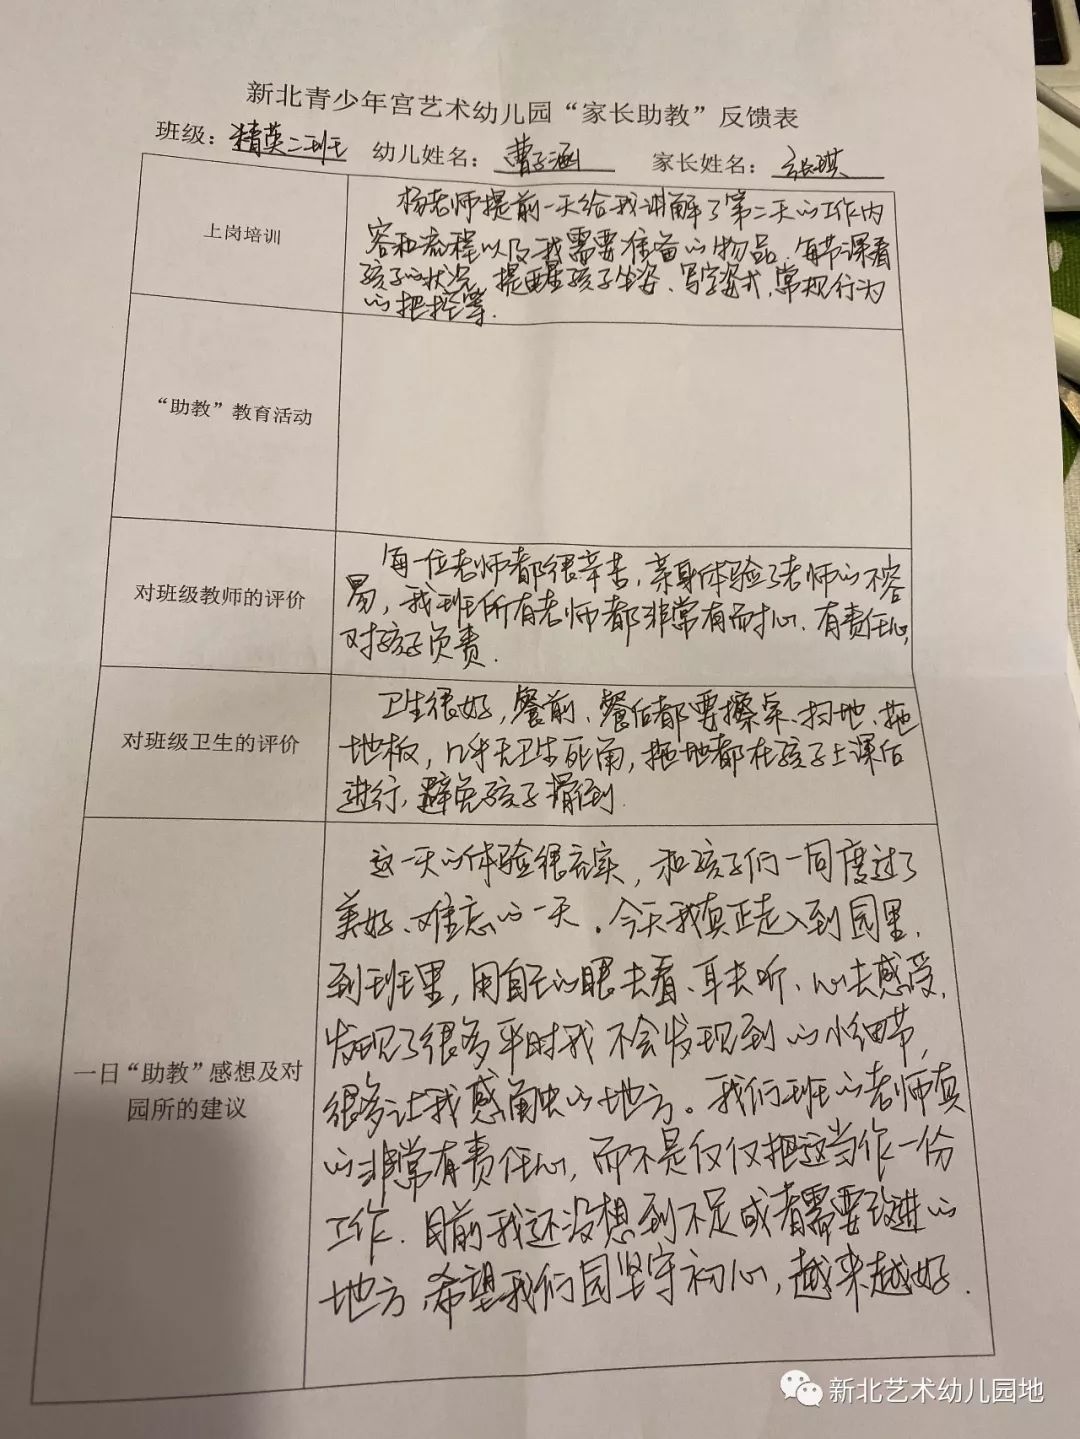 新北青少年宫艺术幼儿园“家长助教”反馈表
班级：精英二班 幼儿姓名：曹子涵 家长姓名：张琪
上岗培训
杨老师提前一天给我讲解了第二天的工作内
容和流程以及我需要准备的物品，每节课看
孩子的状况，提醒孩子坐姿、写字姿式，常规行为
的把控等.
“助教”教育活动
对班级教师的评价
每一位老师都很辛苦，亲身体验了老师的不容
易，我班所有老师都非常有耐心、有责任心，
对孩子负责.
对班级卫生的评价
卫生很好，餐前、餐后都要擦桌、扫地、拖
地板，几乎无卫生死角，拖地都在孩子上课后
进行，避免孩子滑倒.
一日“助教”感想及对
园所的建议
这一天的体验很充实，和孩子们一同度过了
美好、难忘的一天．今天我真正走入到园里，
到班里，用自己的眼去看、耳去听、心去感受，
发现了很多平时我不会发现到的小细节，
很多让我感触的地方。我们班的老师真
的非常有责任心，而不是仅仅把这当作一份
工作．目前我还没想到不足或者需要改进的
地方，希望我们园坚守初心，越来越好．
新北艺术幼儿园地